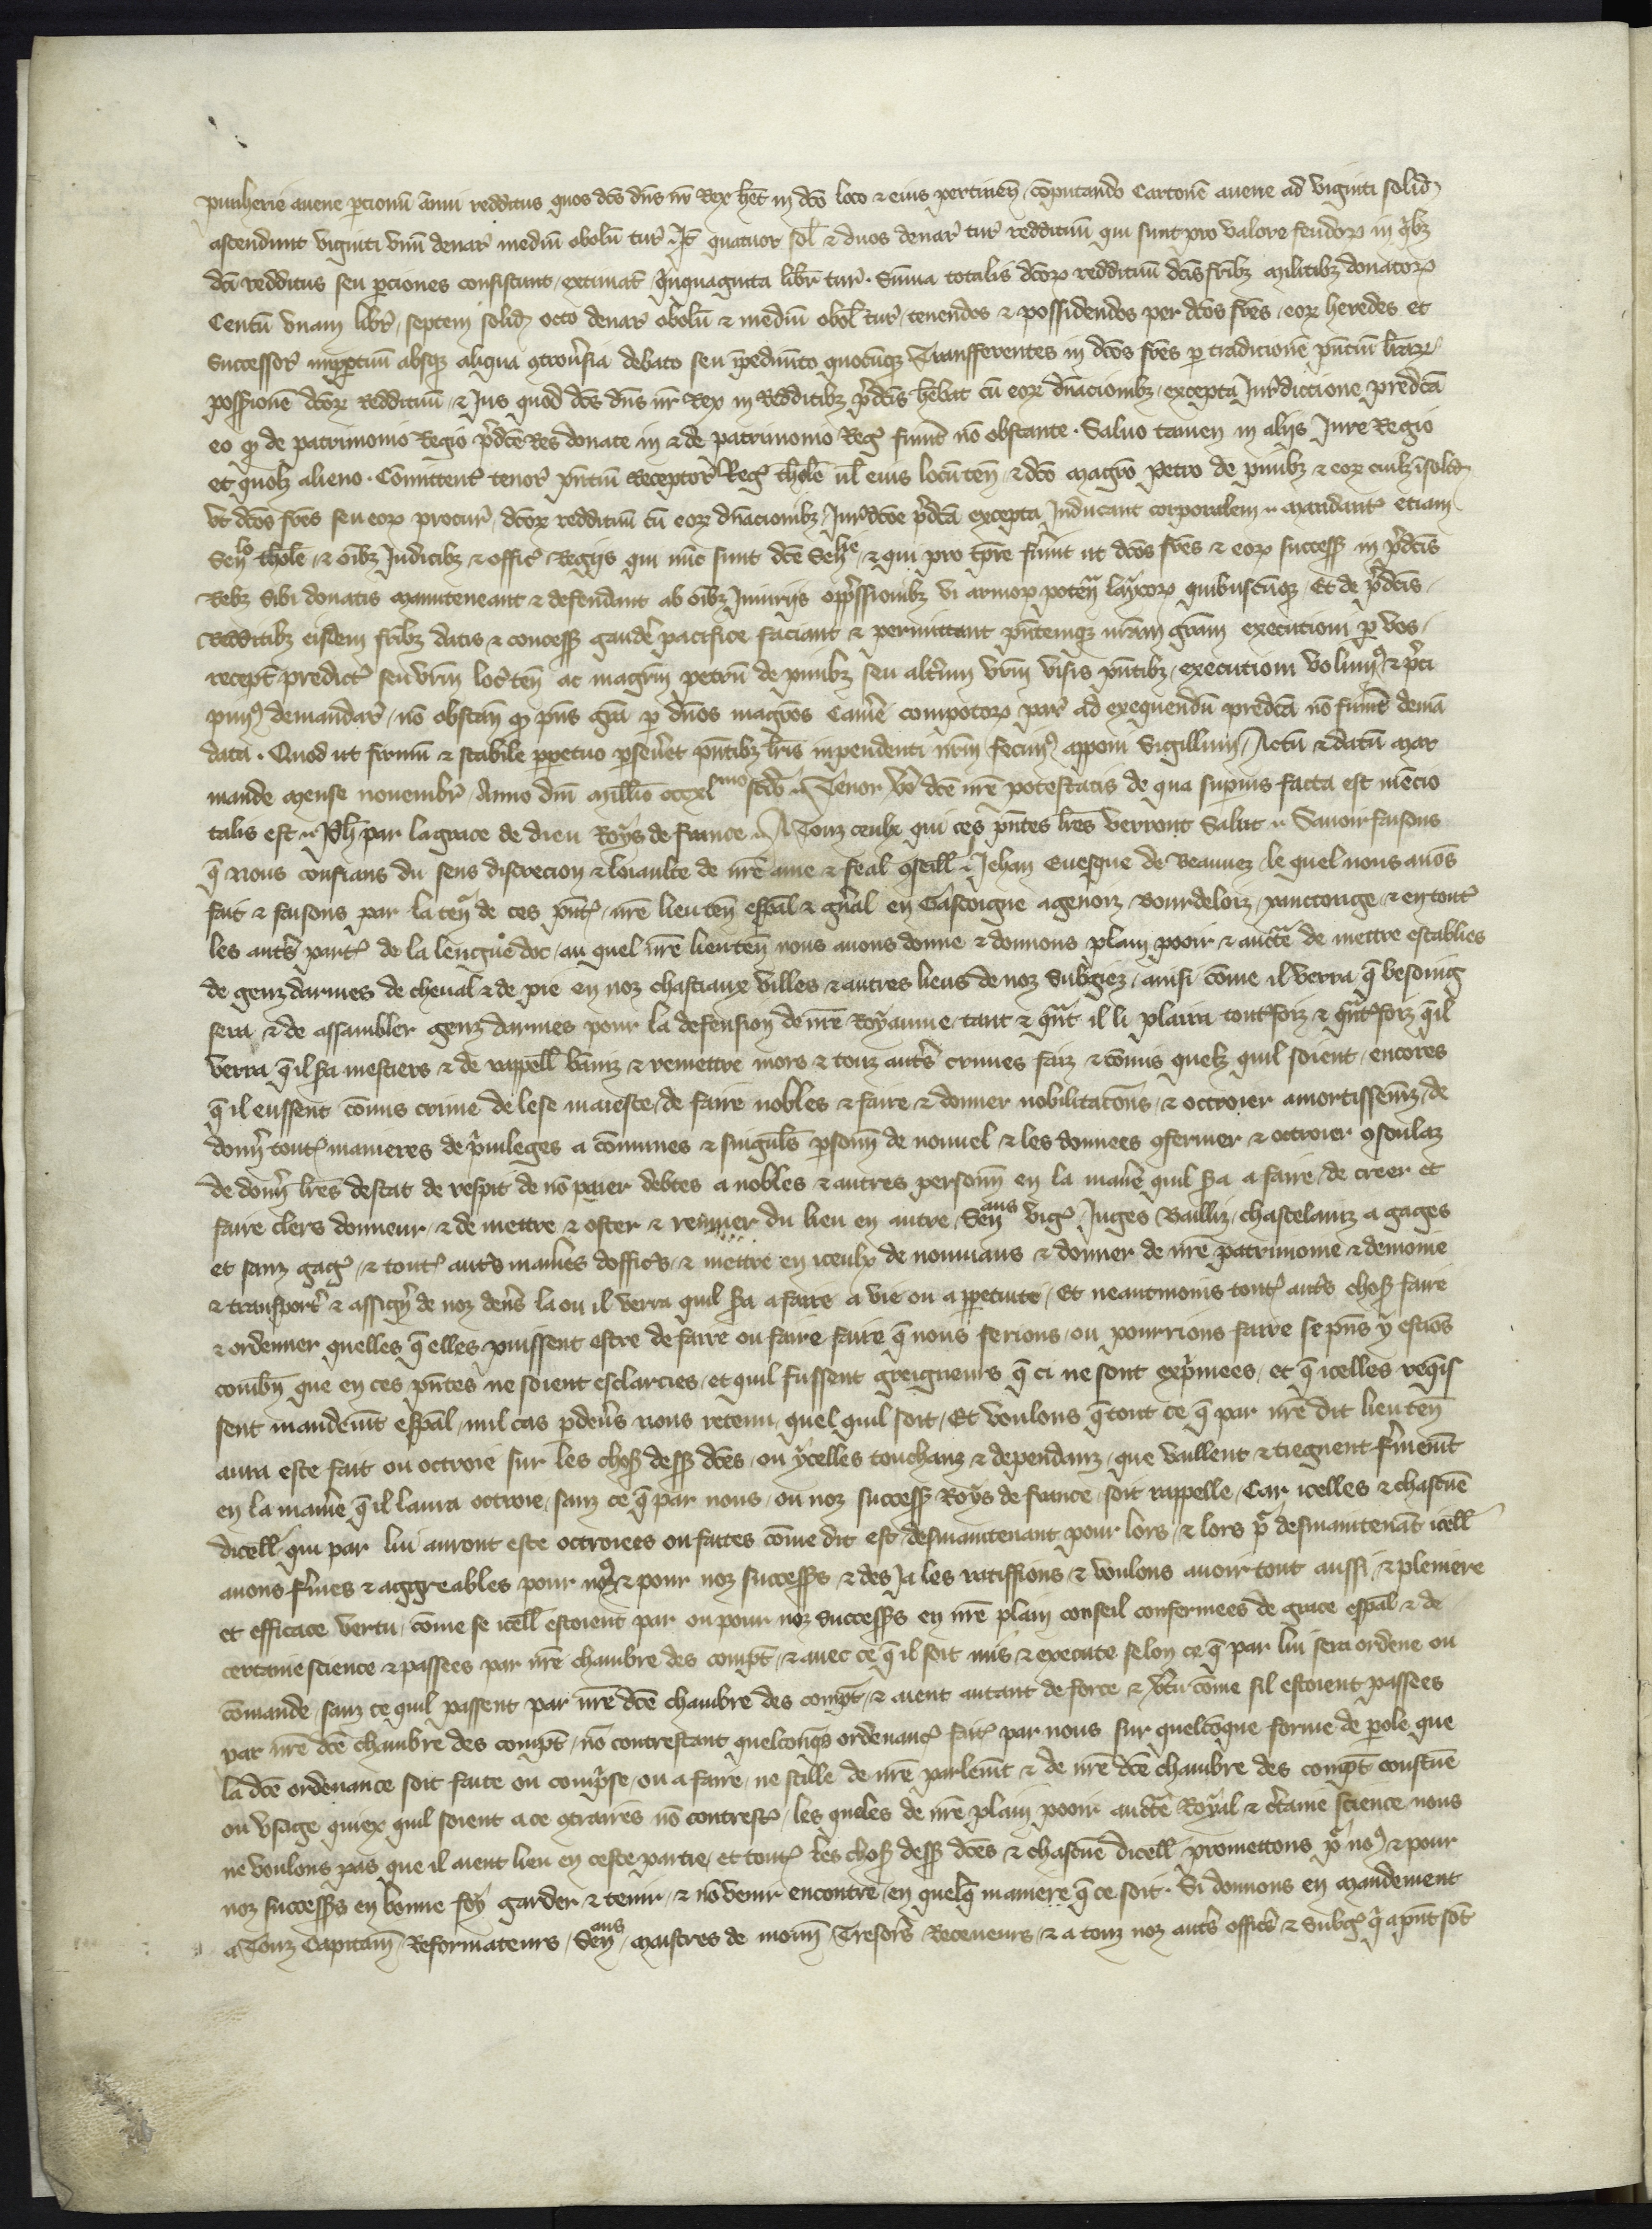 punherie auene porcionũ ãnui redditus quos dc̃s dñs nr̃ Rex hẽt in dc̃o loco ⁊ eius pertineñ, cõputando Cartonẽ auene ad viginti solid
ascendunt viginti vnũ denar̃ mediũ obolũ tur̃. Itẽ quatuor sol̃ ⁊ duos denar̃ tur̃ reddituũ qui sunt pro valore feudoꝝ in qͥbꝫ
dc̃i redditus seu porciones consistunt, extimat̃ Quinquaginta libr̃ tur̃. Sum̃a totalis dc̃oꝝ reddituũ dc̃is fr̃ibꝫ militibꝫ donatoꝝ
Centũ vnam libr̃, septem solid octo denar̃ obolũ ⁊ mediũ obol̃ tur̃, tenendos ⁊ possidendos per dc̃os fr̃es, eoꝝ heredes et
Successor̃ inperpetuũ absqꝫ aliqua ꝯtrou̾sia debato seu ĩpedim̃to quocũqꝫ Transfferentes in dc̃os fr̃es ꝑ tradicionẽ pñtiũ lr̃aꝝ
possessionẽ dc̃oꝝ Reddituũ, ⁊ Jus quod dc̃s dñs nr̃ Rex in Redditibꝫ p̃dc̃is hẽbat cũ eoꝝ dñacionibꝫ, excepta Jur̃dictione predc̃a
eo qꝫ de patrimonio Regio p̃dc̃e Res donate in ⁊ de patrimonio Reg̃ fuerint nõ obstante. Saluo tamen in alijs Jure Regio
et quolꝫ alieno. Cõmittent̃ tenor̃ pñtiũ Receptor̃ Reg̃ thol̃e ul̃ eius locũteñ, ⁊ dc̃o magr̃o Petro de pinibꝫ ⁊ eoꝝ cuilꝫ ĩsolid
vt dc̃os fr̃es seu eoꝝ procur̃, dc̃oꝝ reddituũ cũ eoꝝ dñacionibꝫ, Jur̃dc̃õe p̃dc̃a excepta Inducant corporalem. Mandant̃ etiam
Señlo thol̃e, ⁊ õibꝫ Judicibꝫ ⁊ offic̃ Regijs qui nũc sunt dc̃e Señhe, ⁊ qui pro tp̃re fuerint ut dc̃os fr̃es ⁊ eoꝝ success̃ in p̃dc̃is
Rebꝫ sibi donatis manuteneant ⁊ defendant ab õibꝫ Iniurijs opp̃ssionibꝫ vi armoꝝ potẽtia laycoꝝ quibuscũqꝫ, Et de p̃dc̃is
Redditibꝫ eisdem fr̃ibꝫ datis ⁊ concess̃ gaudẽ pacifice faciant ⁊ permittant pñtemqꝫ nr̃am grãm executioni ꝑ vos,
recept̃ predict̃ seu vr̃m loc̃ teñ ac magr̃m petrũ de pinibꝫ seu alt̃um vr̃m visis pñtibꝫ, executioni volumꝯ ⁊ p̃ci
pimꝯ demandar̃, nõ obstañ qꝫ pñs grã ꝑ dños magr̃os Cam̃e compotoꝝ par̃ ad exequendũ predc̃a nõ fuerit demã
data. Quod ut firmũ ⁊ stabile ppetuo ꝑseũet pñtibꝫ lr̃is inpendenti nr̃m fecimꝯ apponi Sigillum, Actũ ⁊ datũ Mar
mande mense nouembr̃, Anno dñi mill̃io cccxlmo scd̃o. Tenor v̾o dc̃e nr̃e potestatis de qua superius facta est mẽcio
talis est. Ph̃ par la grace de dieu Roys de france. A Touz ceulx qui ces pñtes lr̃es verront Salut. Sauoir faisons
q̃ nous confians du sens discrecion ⁊ loiaulte de nr̃e ame ⁊ feal ꝯseill̃. Jehan Euesque de Beauuez, le quel nous auõs
fait ⁊ faisons par la teñ de ces pñt̃, nr̃e lieuteñ esp̃al ⁊ gñal en Gascoigne agenoiz, Bourdeloiz, xanctonge, ⁊ en tout̃
les aut̃s part̃ de la lengue doc, au quel nr̃e lieuteñ nous auons donne ⁊ donnons plain pooir ⁊ auct̃e de mettre establies
de genz darmes de cheual ⁊ de pie en noz chastiaux villes ⁊ autres lieus de noz Subgiez, ainsi cõme il verra q̃ besoing
sera ⁊ de assambler genz darmes pour la defension de nr̃e Royaume, tant ⁊ q̃nt il li plaira tout̃foiz ⁊ q̃nt̃foiz q̃ il
verra q̃ il sera mestiers ⁊ de rappell̃ bãniz ⁊ remettre mors ⁊ touz aut̃s crimes faiz ⁊ cõmis quelx quil soient, encores
q̃ il eussent cõmis crime de lese maieste, de faire nobles ⁊ faire ⁊ donner nobilitac̃ons, ⁊ octroier amortissem̃z, de
donñ tout̃ manieres de p̃uileges a cõmunes ⁊ singul̃s ꝑsonñ de nouuel ⁊ les donnees ꝯfermer ⁊ octroier ꝯsoulaz
de donñ lr̃es destat de respit de nõ paier debtes a nobles ⁊ autres personñ en la mañe quil sera a faire, de creer et
faire clers donneur, ⁊ de mettre ⁊ oster ⁊ remuer du lieu en autre, Señaus vig̃ Juges Bailliz, chastelainz a gages
et sanz gag̃, ⁊ tout̃ aut̃s mañes doffic̃s, ⁊ mettre en iceulx de nouuiaus ⁊ donner de nr̃e patrimoine ⁊ demoine
⁊ transport̃ ⁊ assigñ de noz deñs la ou il verra quil sera a faire a vie ou a ppetuite, Et neantmoins tout̃ aut̃s chos̃ faire
⁊ ordenner quelles q̃ elles puissent estre de faire ou faire faire q̃ nous ferions, ou pourrions faire se pñs y estiõs
combñ que en ces pñtes ne soient esclarcies, et quil fussent greigneurs q̃ ci ne sont exp̃mees, et q̃ icelles req̃is
sent mandem̃t esp̃al, nul cas ꝑdeũs nous retenu, quel quil soit, Et voulons q̃ tout ce q̃ par nr̃e dit lieuteñ
aura este fait ou octroie sur les chos̃ dess̃ dc̃es, ou ycelles touchanz ⁊ dependanz, que vaillent ⁊ tiegnent fermem̃t
en la mañe q̃ il laura octroie, sanz ce q̃ par nous, ou noz success̃ Roys de france, soit rappelle, Car icelles ⁊ chascũe
dicell̃ qui par lui auront este octroiees ou faites cõme dit est, desmaintenant pour lors, ⁊ lors pͬ desmaintenãt icell̃
auons fermes ⁊ aggreables pour noꝯ ⁊ pour noz success̃s ⁊ des Ja les ratiffions ⁊ voulons auoir tout aussi, ⁊ pleniere
et efficace vertu, cõme se icell̃ estoient par ou pour noz success̃s en nr̃e plain conseil confermees de grace esp̃al ⁊ de
certaine science ⁊ passees par nr̃e chambre des compt̃, ⁊ auec ce q̃ il soit mis ⁊ execute selon ce q̃ par lui sera ordene ou
cõmande, sanz ce quil passent par nr̃e dc̃e chambre des compt̃, ⁊ aient autant de force ⁊ v̾tu cõme sil estoient passees
par nr̃e dc̃e chambre des compt̃, nõ contrestant quelconq̃s ordenanc̃ fait̃ par nous sur quelcõque forme de ꝑole que
la dc̃e ordenance soit faite ou comp̃se, ou a faire, ne stille de nr̃e parlem̃t ⁊ de nr̃e dc̃e chambre des compt̃ constũe
ou vsage quiex quil soient a ce ꝯtraires nõ contrest̃, les queles de nr̃e plain pooir auct̃e Royal ⁊ c̃taine science nous
ne voulons pas que il aient lieu en ceste partie, et tout̃ les chos̃ dess̃ dc̃es ⁊ chascũe dicell̃ promettons pͬ noꝯ ⁊ pour
noz success̃s en bonne foy garder ⁊ tenir, ⁊ nõ venir encontre, en quelq̃ maniere q̃ ce soit. Si donnons en Mandement
a Touz Capitaiñ, Reformateurs, Señaus, Maistres de monñ Tresor̃s Receueurs, ⁊ a touz noz aut̃s offic̃s ⁊ subg̃ qͥ a pñt sõt